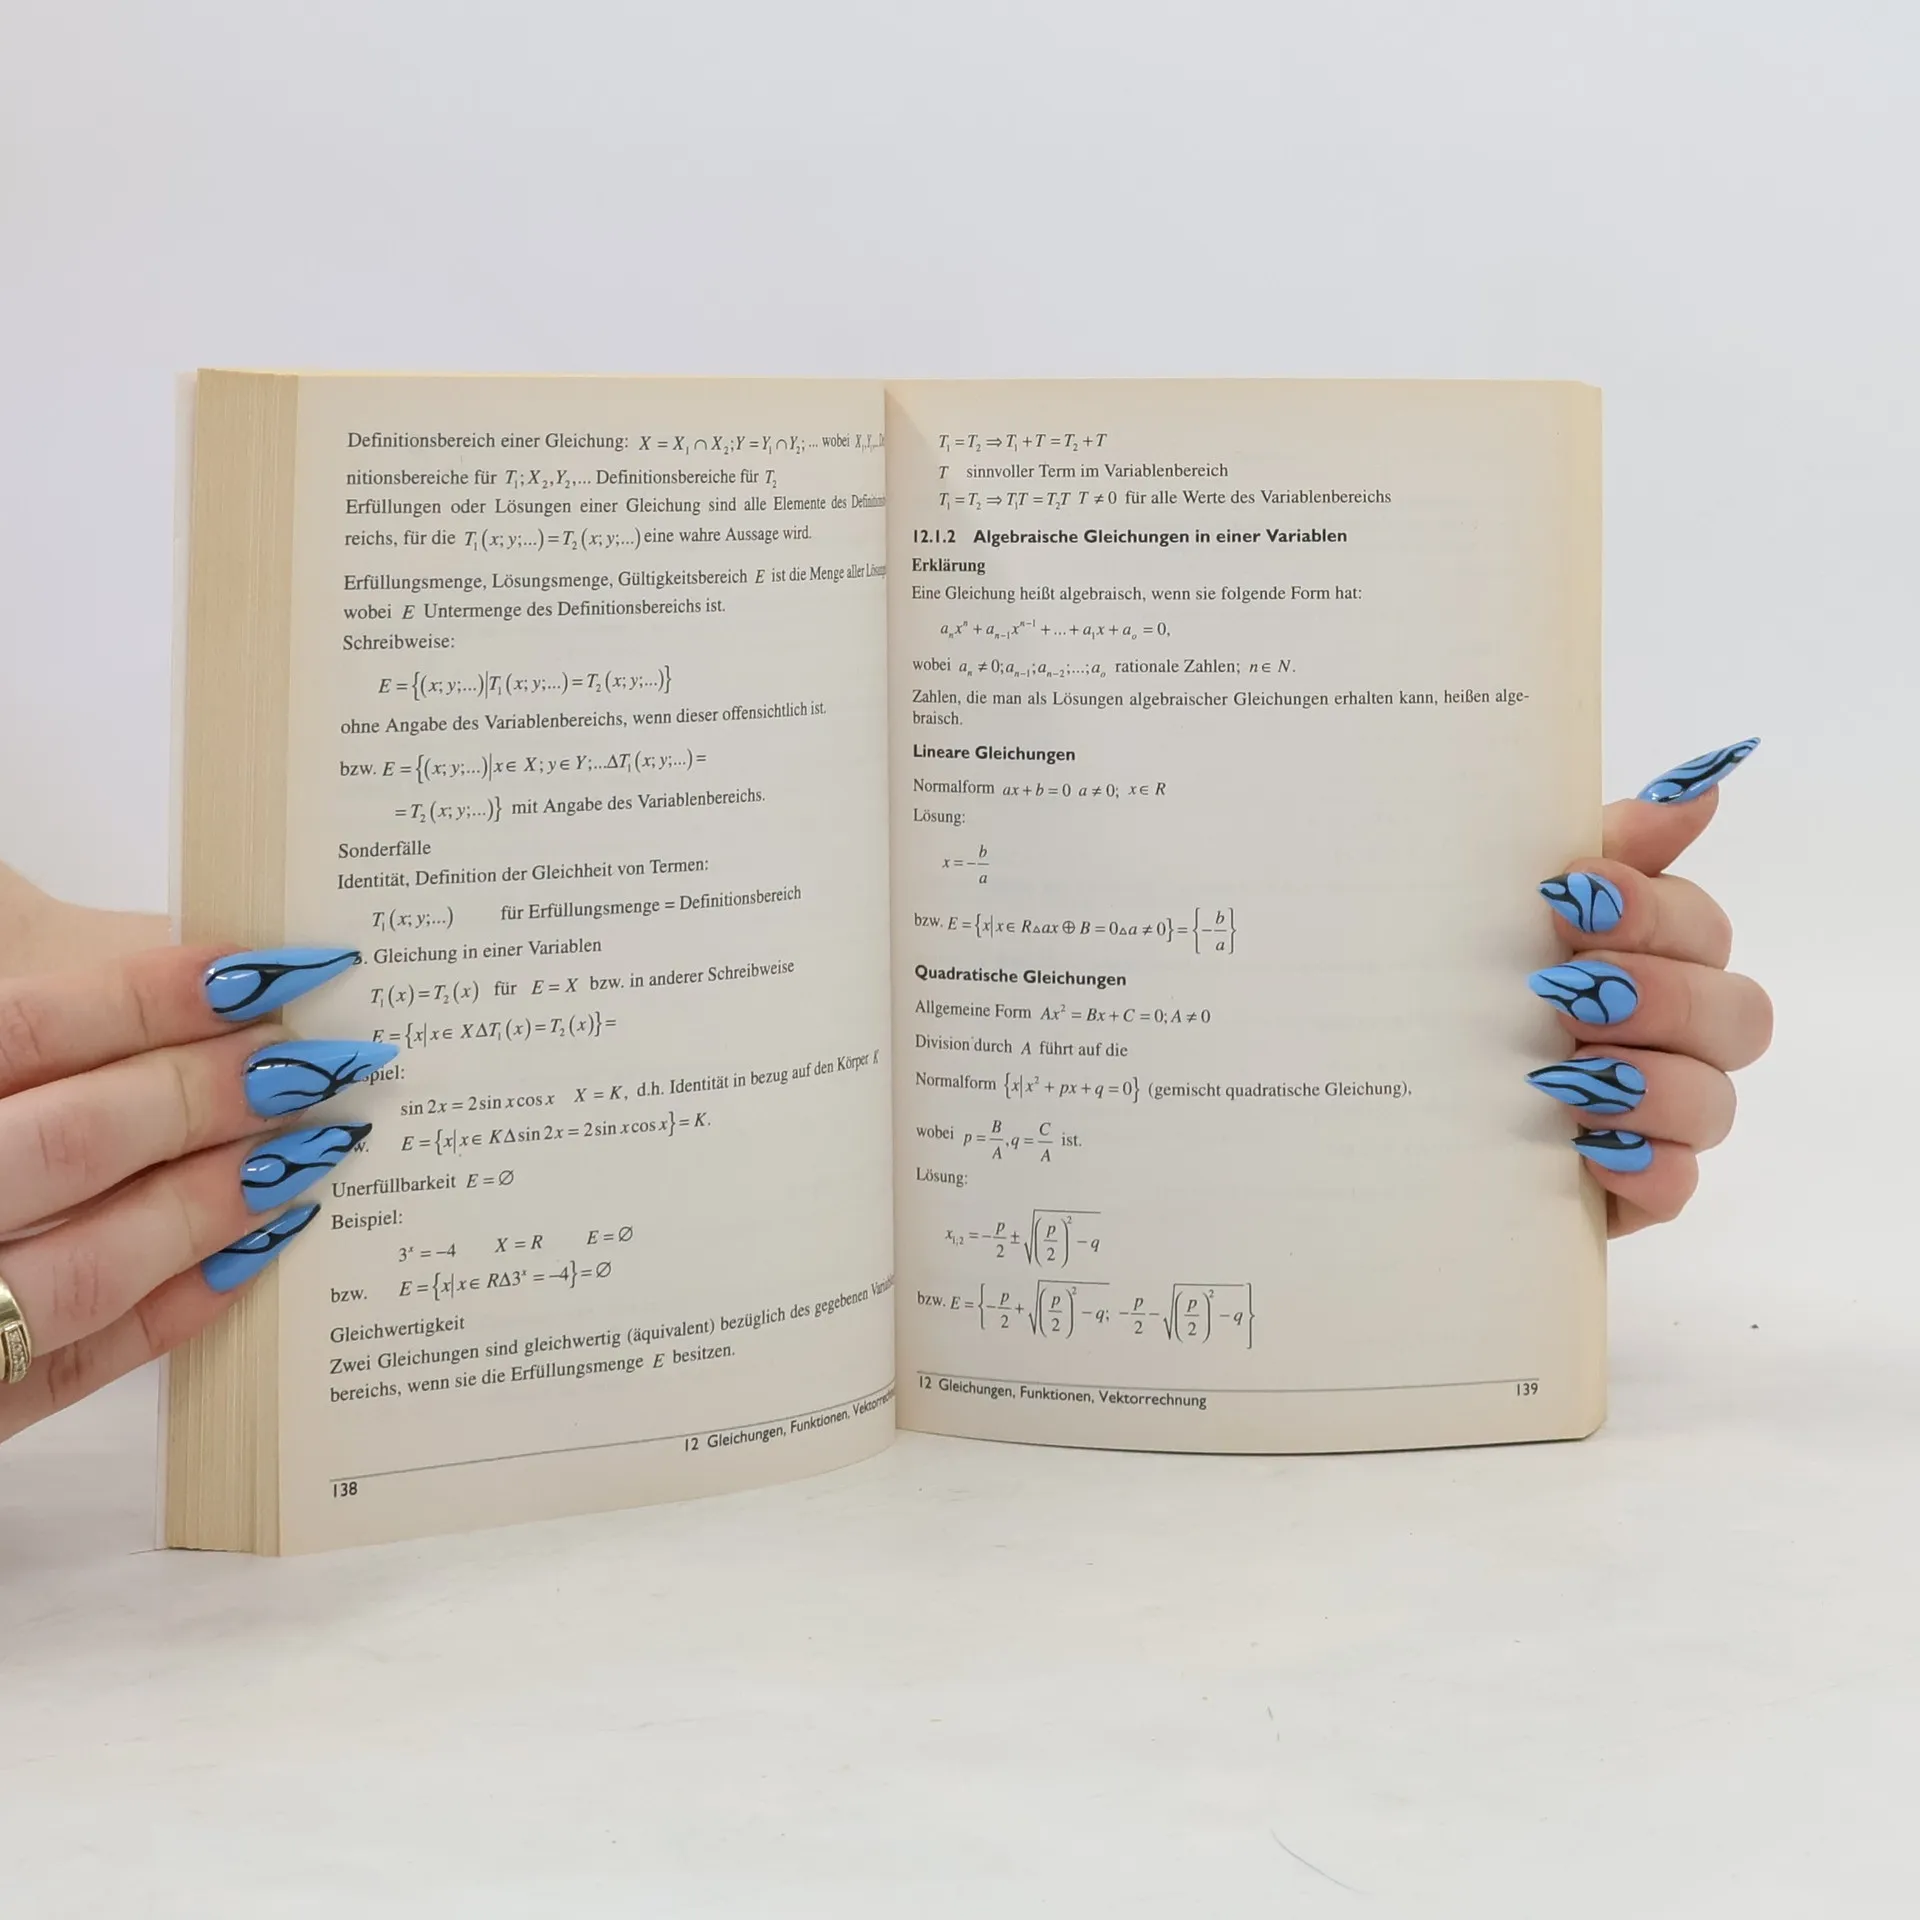 Definitionsbereich einer Gleichung: X = X₁ ∩ X₂; Y = Y₁ ∩ Y₂; ... wobei
nitionsbereiche für T₁; X₂, Y₂, ... Definitionsbereiche für T₂
Erfüllungen oder Lösungen einer Gleichung sind alle Elemente des
reichs, für die T₁(x; y;...) = T₂(x; y;...) eine wahre Aussage wird.
Erfüllungsmenge, Lösungsmenge, Gültigkeitsbereich E ist die Menge aller
wobei E Untermenge des Definitionsbereichs ist.
Schreibweise:
E = {(x; y;...)|T₁(x; y;...) = T₂(x; y;...)}
ohne Angabe des Variablenbereichs, wenn dieser offensichtlich ist.
bzw. E = {(x; y;...)|x ∈ X; y ∈ Y;...ΔT₁(x; y;...) =
= T₂(x; y;...)} mit Angabe des Variablenbereichs.
Sonderfälle
Identität, Definition der Gleichheit von Termen:
T₁(x; y;...) für Erfüllungsmenge = Definitionsbereich
. Gleichung in einer Variablen
T₁(x) = T₂(x) für E = X bzw. in anderer Schreibweise
E = {x|x ∈ XΔT₁(x) = T₂(x)} =
spiel:
sin 2x = 2 sin x cos x X = K, d.h. Identität in bezug auf den Körper K
w. E = {x|x ∈ KΔ sin 2x = 2 sin x cos x} = K.
Unerfüllbarkeit E = ∅
Beispiel:
3ˣ = −4 X = R E = ∅
bzw. E = {x|x ∈ RΔ3ˣ = −4} = ∅
Gleichwertigkeit
Zwei Gleichungen sind gleichwertig (äquivalent) bezüglich des gegebenen
bereichs, wenn sie die Erfüllungsmenge E besitzen.
12 Gleichungen, Funktionen,
138
T₁ = T₂ ⇒ T₁ + T = T₂ + T
T sinnvoller Term im Variablenbereich
T₁ = T₂ ⇒ T₁T = T₂T T ≠ 0 für alle Werte des Variablenbereichs
12.1.2 Algebraische Gleichungen in einer Variablen
Erklärung
Eine Gleichung heißt algebraisch, wenn sie folgende Form hat:
aₙxⁿ + aₙ₋₁xⁿ⁻¹ + ... + a₁x + aₒ = 0,
wobei aₙ ≠ 0; aₙ₋₁; aₙ₋₂;...; aₒ rationale Zahlen; n ∈ N.
Zahlen, die man als Lösungen algebraischer Gleichungen erhalten kann, heißen alge-
braisch.
Lineare Gleichungen
Normalform ax + b = 0 a ≠ 0; x ∈ R
Lösung:
x = −b/a
bzw. E = {x|x ∈ R△ax ⊕ B = 0△a ≠ 0} = {−b/a}
Quadratische Gleichungen
Allgemeine Form Ax² = Bx + C = 0; A ≠ 0
Division durch A führt auf die
Normalform {x|x² + px + q = 0} (gemischt quadratische Gleichung),
wobei p = B/A, q = C/A ist.
Lösung:
x₁,₂ = −p/2 ± √((p/2)² − q)
bzw. E = {−p/2 + √((p/2)² − q; −p/2 − √((p/2)² − q)}
12 Gleichungen, Funktionen, Vektorrechnung
139